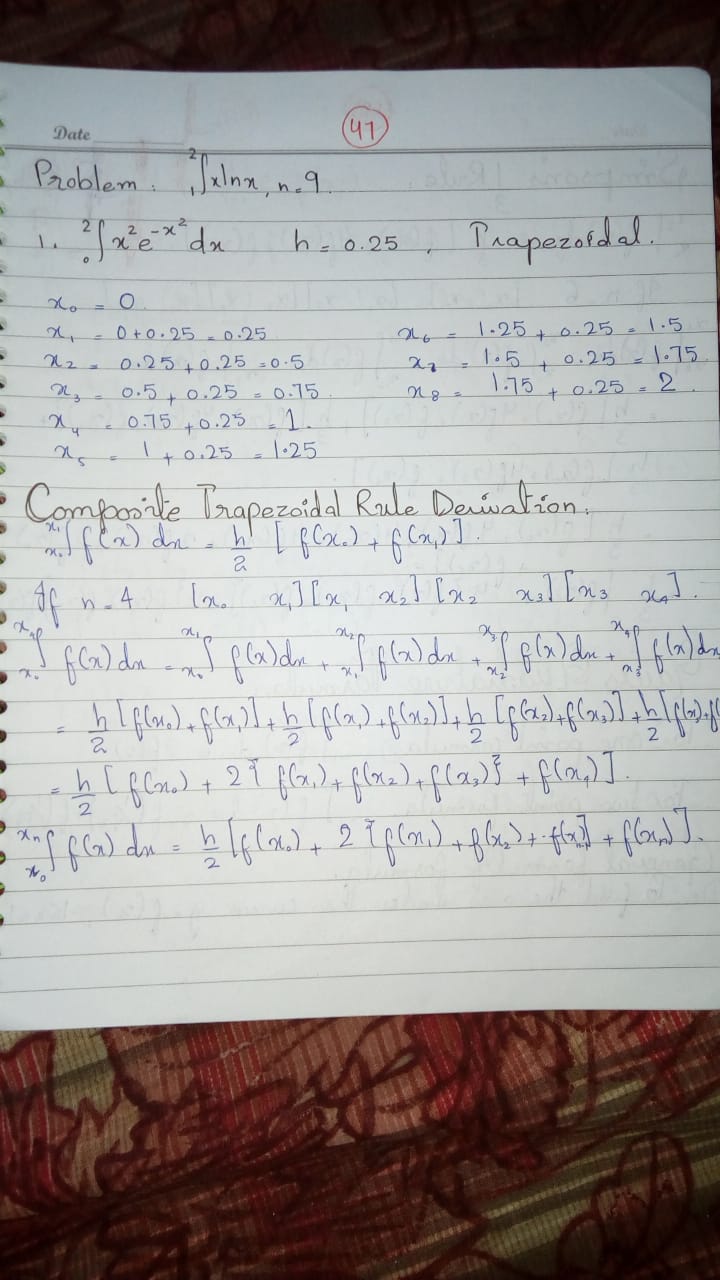 Date
41
Problem : ₁²∫xlnx, n=9.
1. ₀²∫x²e^-x² dx h = 0.25 , Trapezoidal.
x₀ = 0
x₁ = 0+0.25 = 0.25
x₂ = 0.25+0.25 =0.5
x₃ = 0.5 + 0.25 = 0.75
x₄ = 0.75 +0.25 = 1.
x₅ = 1 + 0.25 = 1.25
x₆ = 1.25 + 0.25 = 1.5
x₇ = 1.5 + 0.25 = 1.75
x₈ = 1.75 + 0.25 = 2
Composite Trapezoidal Rule Derivation.
x₀^x₁∫f(x) dx = h/2 [ f(x₀) + f(x₁) ].
If n=4 [x₀ x₁][x₁ x₂][x₂ x₃][x₃ x₄].
x₀^x₄∫ f(x) dx = x₀^x₁∫ f(x)dx + x₁^x₂∫ f(x)dx + x₂^x₃∫ f(x)dx + x₃^x₄∫ f(x)dx
= h/2 [f(x₀)+f(x₁)] + h/2 [f(x₁)+f(x₂)] + h/2 [f(x₂)+f(x₃)] + h/2 [f(x₃)+f
= h/2 [ f(x₀) + 2{ f(x₁) + f(x₂) + f(x₃)} + f(x₄) ].
x₀^xₙ∫ f(x) dx = h/2 [f(x₀) + 2 {f(x₁) + f(x₂) + + f(xₙ)].